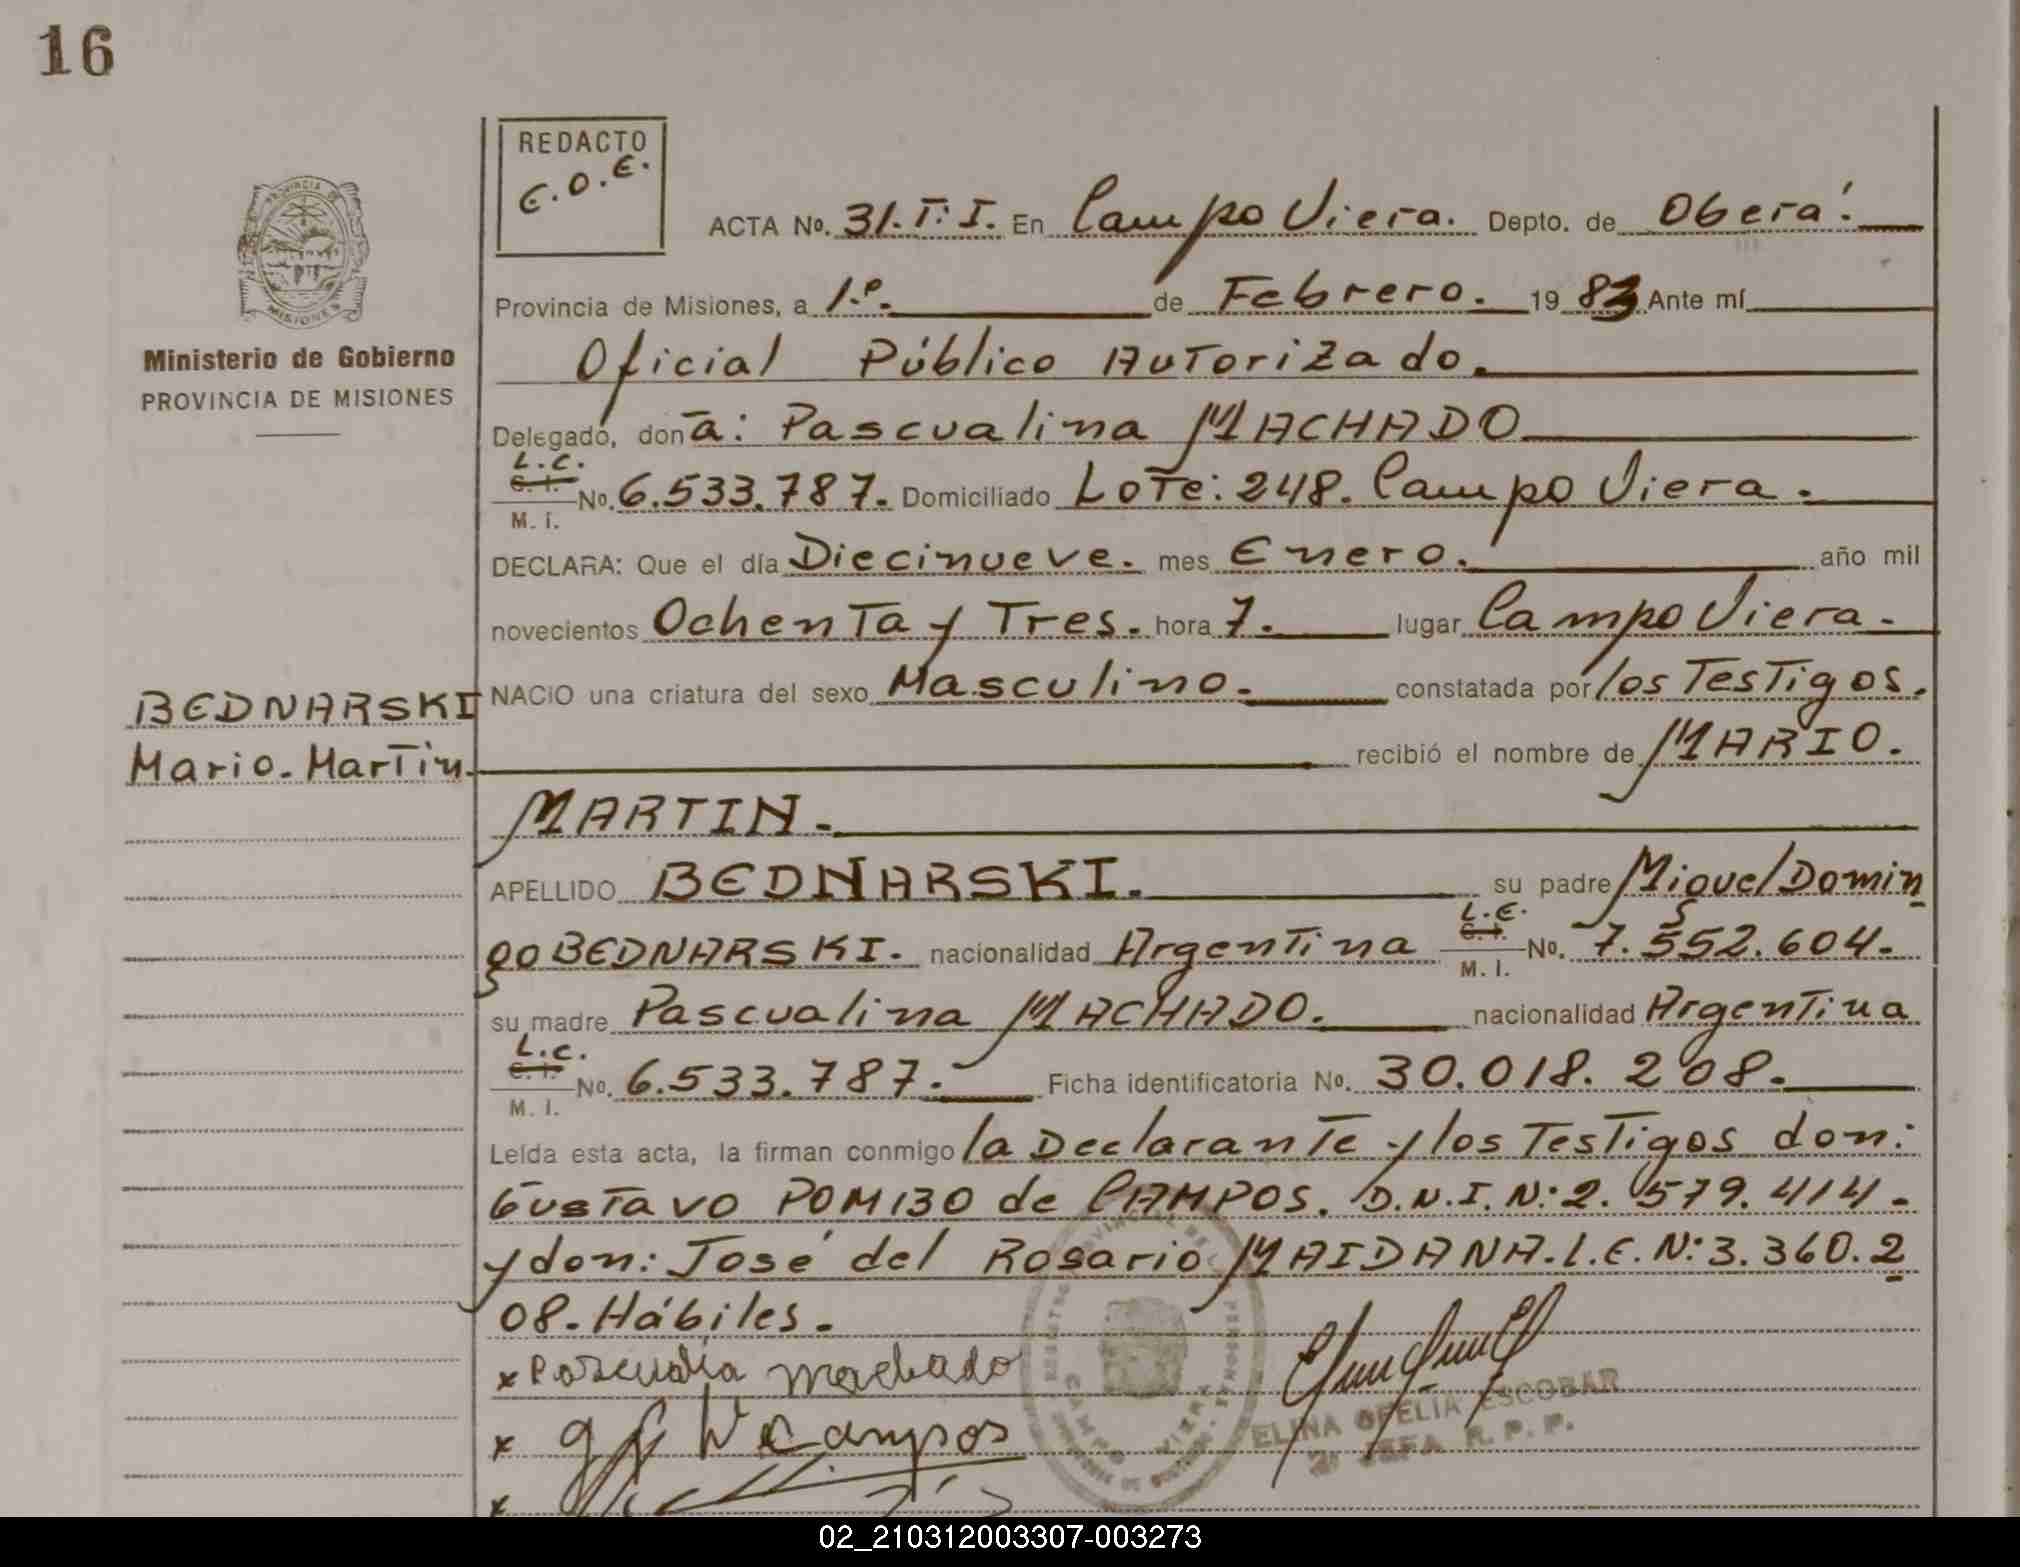 16
REDACTO
E.O.E.
ACTA No. 31.T:I. En Campo Viera. Depto. de Oberá.
Provincia de Misiones, a 1.º de Febrero. 1983 Ante mí
Oficial Público Autorizado.
Ministerio de Gobierno
PROVINCIA DE MISIONES
Delegado, don a: Pascualina MACHADO
L.C.
C. I. No. 6.533.787. Domiciliado Lote: 248. Campo Viera.
M. I.
DECLARA: Que el día Diecinueve. mes Enero. año mil
novecientos Ochenta y Tres. hora 7. lugar Campo Viera.
BEDNARSKI
Mario. Martin.
NACIO una criatura del sexo Masculino. constatada por los Testigos.
recibió el nombre de MARIO.
MARTIN.
APELLIDO BEDNARSKI. su padre Miguel Domin
go BEDNARSKI. nacionalidad Argentina L.E. C. I. M. I. No. 7.552.604.
su madre Pascualina MACHADO. nacionalidad Argentina
L.C.
C. I. No. 6.533.787. Ficha identificatoria No. 30.018.208.
M. I.
Leída esta acta, la firman conmigo la Declarante y los Testigos don:
Gustavo POMBO de CAMPOS. D.N.I.N: 2.579.414.
y don: José del Rosario MAIDANA. L.E.N: 3.360.2
08. Hábiles.
x Machado
x Campos
x
ELINA OFELIA ESCOBAR
JEFA R. P. P.
02_210312003307-003273